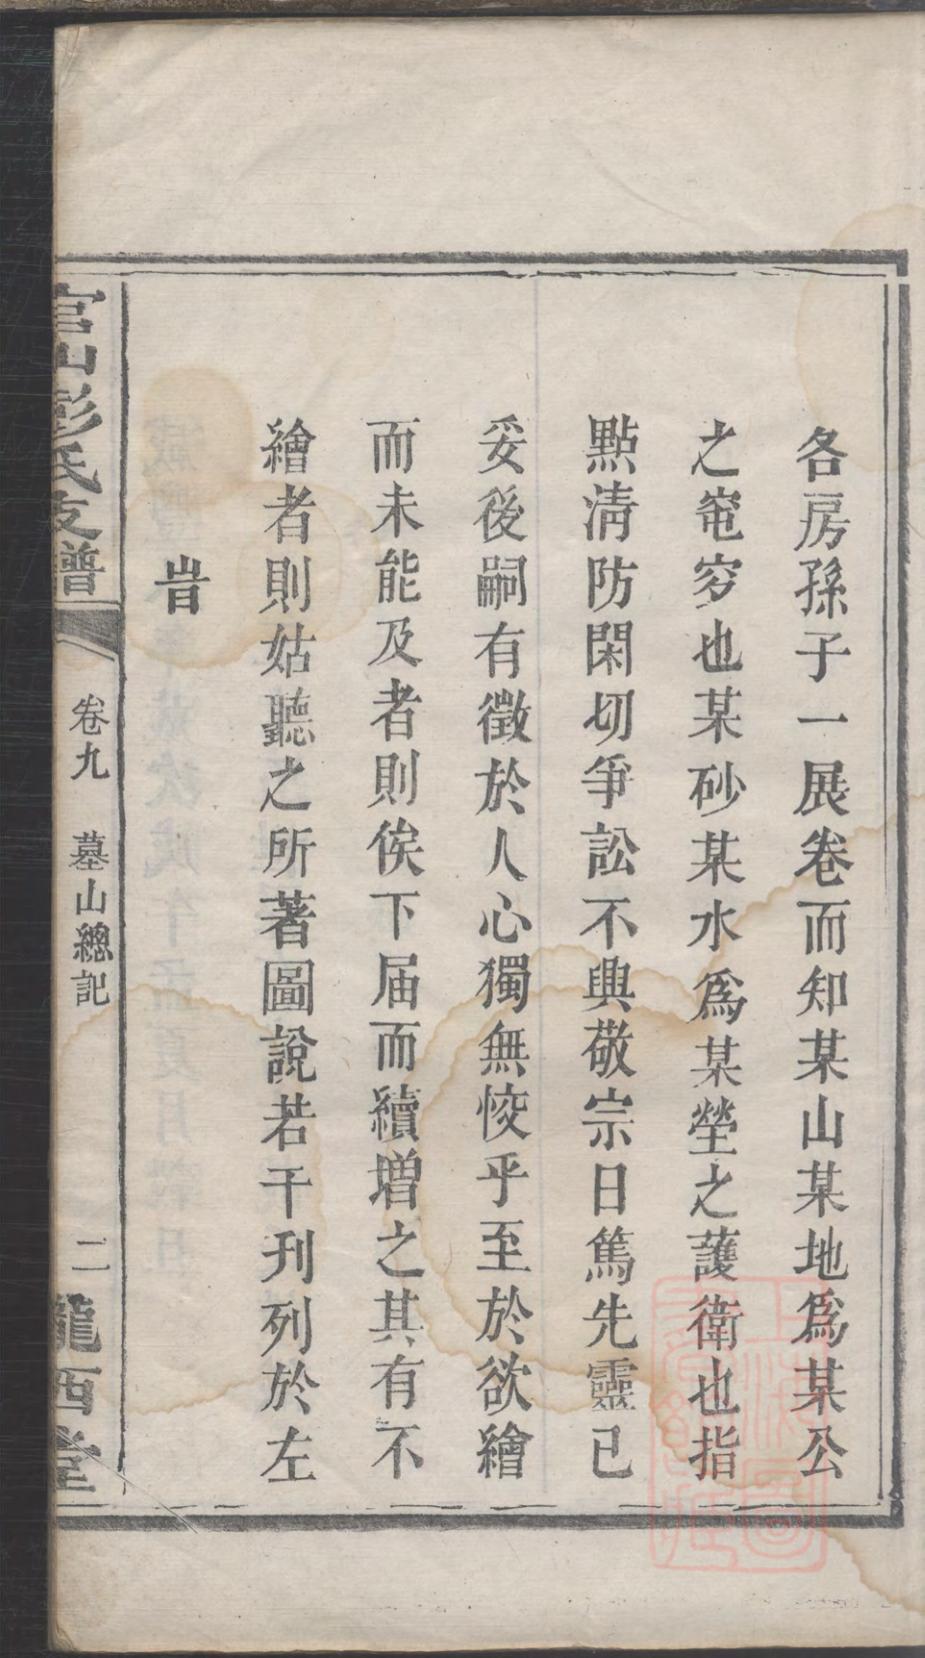 各房孫子一展卷而知某山某地爲某公
之窀穸也某砂某水爲某塋之護衛也指
點清防閑切爭訟不興敬宗日篤先靈已
妥後嗣有徵於人心獨無恔乎至於欲繪
而未能及者則俟下届而續增之其有不
繪者則姑聽之所著圖說若干刊列於左
旹
官山彭氏支譜
卷九 墓山總記
二 隴西堂